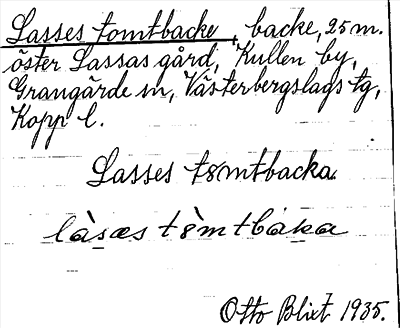 Lasses tomtbacke, backe, 25 m.
öster Lassas gård, Kullen by,
Grangärde sn, Västerbergslags tg,
Kopp l.
Lasses t8mtbacka
làsæs t8̀mtbaka
Otto Blixt 1935.